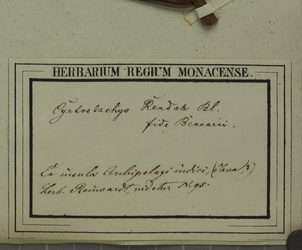 HERBARIUM REGIUM MONACENSE.
Cyrtostachys Rendah Bl.
fide Beccarii.
Ex insula Archipelagi indici, (Java?)
Herb. Reinwardt, videtur N. 98.